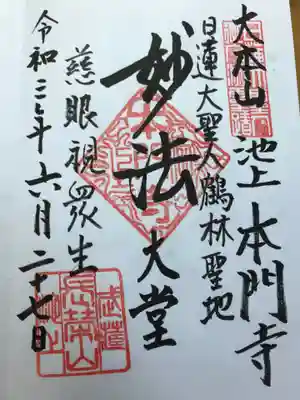 大本山 池上 本門寺
日蓮大聖人鶴林聖地
妙法 大堂
慈眼視衆生
令和三年六月二十七日